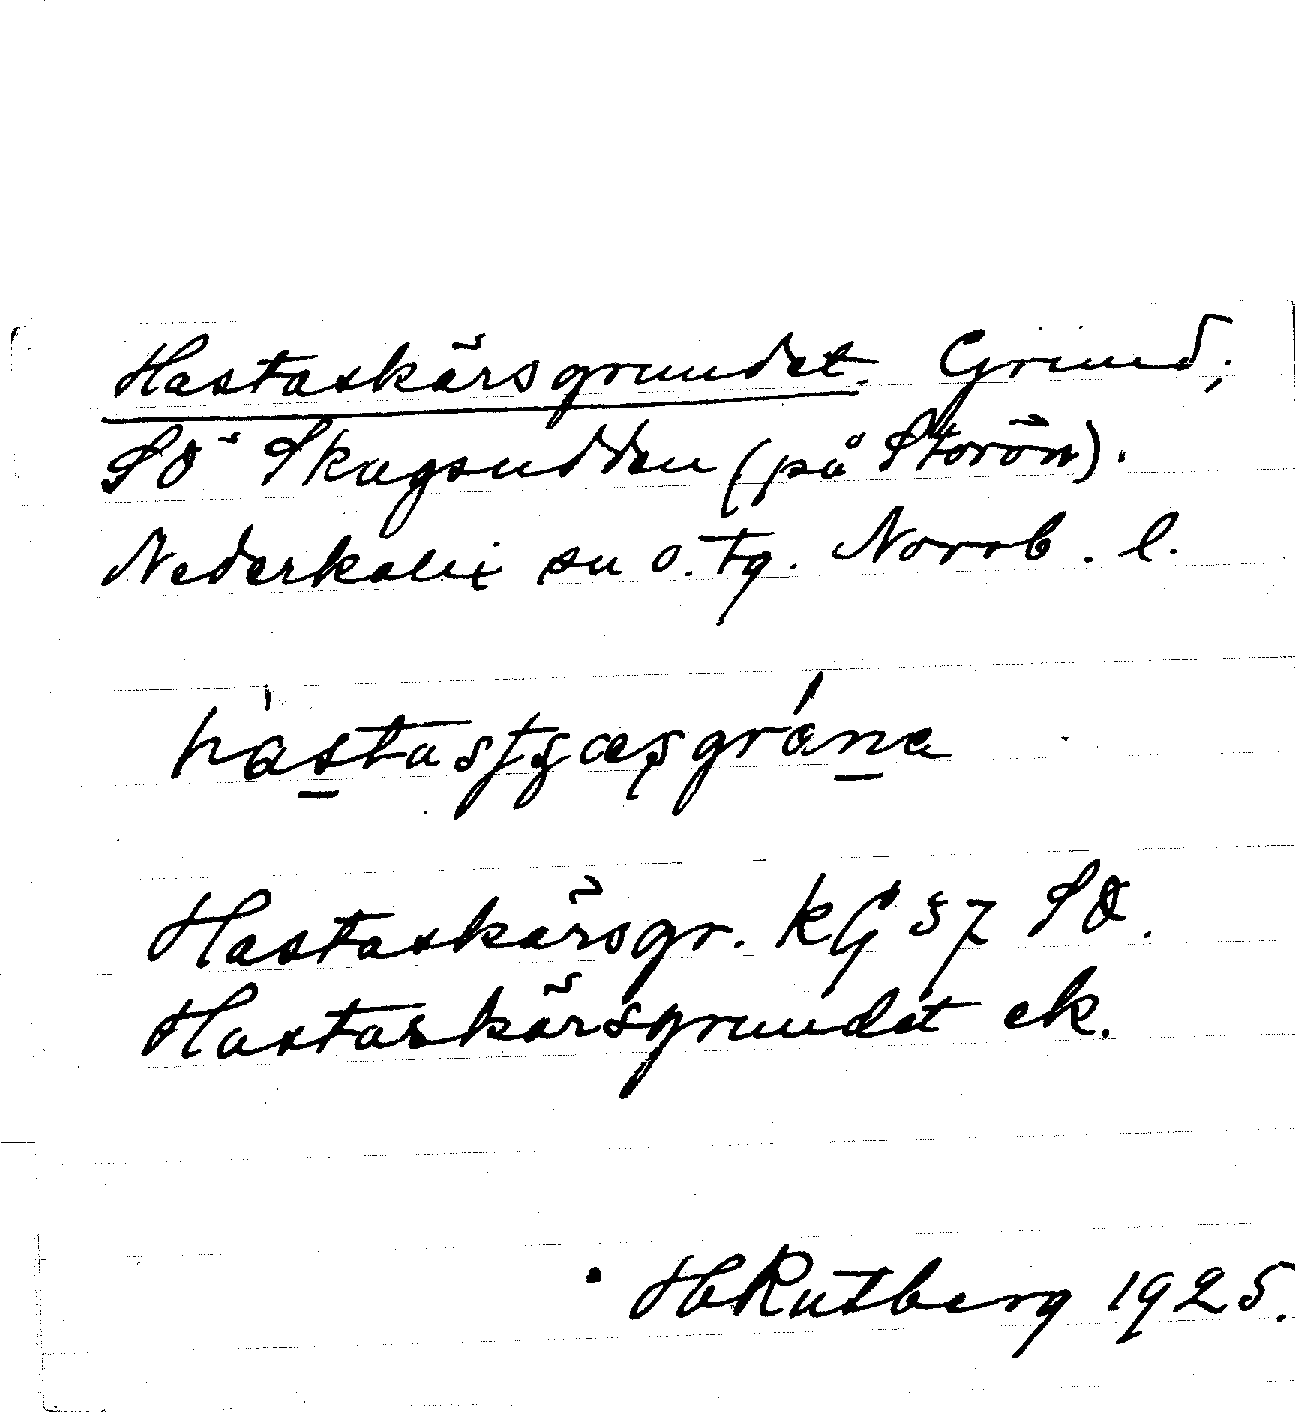 Hastaskärsgrundet. Grund,
SO Skagsudden (på Storön).
Nederkalix sn o. tg. Norrb. l.
Hastaskärsgr. kG 57 SO.
Hastaskärsgrundet ek.
HRutberg 1925.